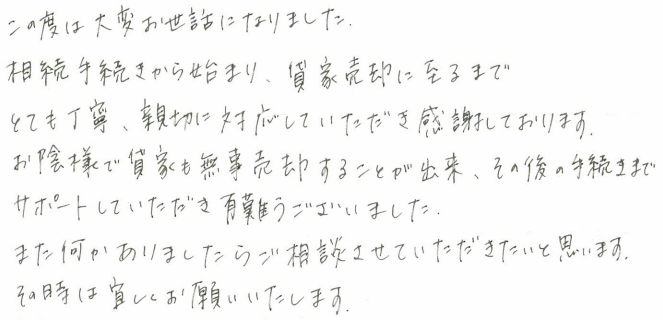 この度は大変お世話になりました.
相続手続きから始まり、貸家売却に至るまで
とても丁寧、親切に対応していただき感謝しております.
お陰様で貸家も無事売却することが出来、その後の手続きまで
サポートしていただき有難うございました.
また何かありましたらご相談させていただきたいと思います.
その時は宜しくお願いいたします.